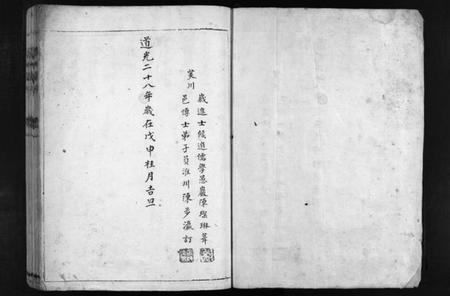 歲進士候選儒學恩巖陳瑆琳葺
奕川
邑博士弟子員淮川陳步瀛訂
道光二十八年歲在戊申桂月吉旦